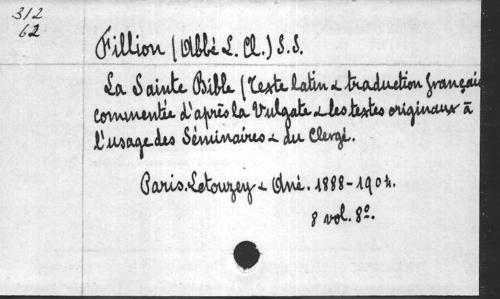 312
62
Fillion (Abbé L. Cl.) S.S.
La Sainte Bible (Texte latin & traduction françai
commentée d'après la Vulgate & les textes originaux à
l'usage des Séminaires & du Clergé.
Paris. Letouzey & Ané. 1888-1904.
8 vol. 8º.